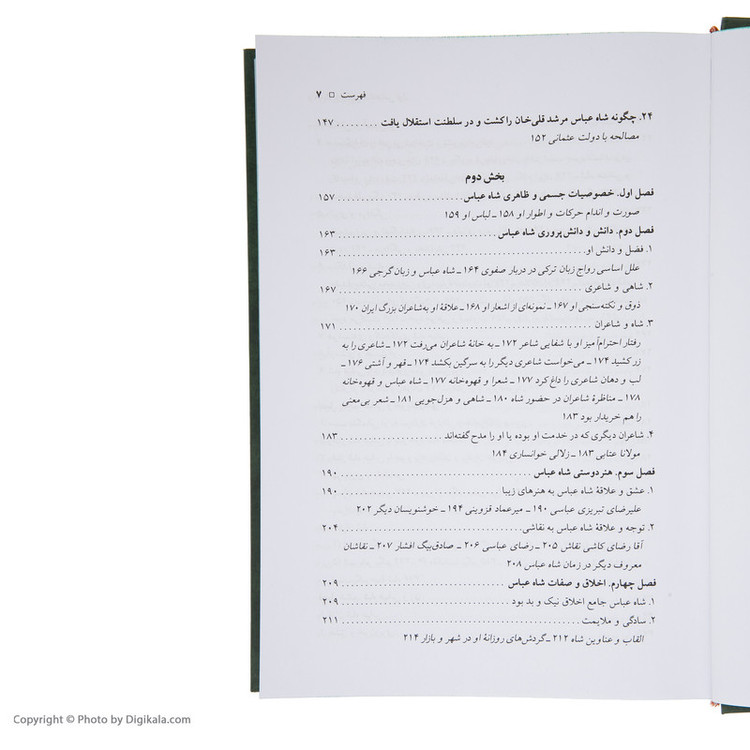 فهرست □ ۷
۲۴. چگونه شاه عباس مرشد قلی‌خان را کشت و در سلطنت استقلال یافت ......... ۱۴۷
مصالحه با دولت عثمانی ۱۵۲
بخش دوم
فصل اول. خصوصیات جسمی و ظاهری شاه عباس ......... ۱۵۷
صورت و اندام حرکات و اطوار او ۱۵۸ ـ لباس او ۱۵۹
فصل دوم. دانش و دانش‌پروری شاه عباس ......... ۱۶۳
۱. فضل و دانش او ......... ۱۶۳
علل اساسی رواج زبان ترکی در دربار صفوی ۱۶۴ ـ شاه عباس و زبان گرجی ۱۶۶
۲. شاهی و شاعری ......... ۱۶۷
ذوق و نکته‌سنجی او ۱۶۷ ـ نمونه‌ای از اشعار او ۱۶۸ ـ علاقهٔ او به شاعران بزرگ ایران ۱۷۰
۳. شاه و شاعران ......... ۱۷۱
رفتار احترام‌آمیز او با شفایی شاعر ۱۷۲ ـ به خانهٔ شاعران می‌رفت ۱۷۲ ـ شاعری را به
زر کشید ۱۷۴ ـ می‌خواست شاعری دیگر را به سرگین بکشد ۱۷۴ ـ قهر و آشتی ۱۷۶ ـ
لب و دهان شاعری را داغ کرد ۱۷۷ ـ شعرا و قهوه‌خانه ۱۷۷ ـ شاه عباس و قهوه‌خانه
۱۷۸ ـ مناظرهٔ شاعران در حضور شاه ۱۸۰ ـ شاهی و هزل‌جویی ۱۸۱ ـ شعر بی‌معنی
را هم خریدار بود ۱۸۳
۴. شاعران دیگری که در خدمت او بوده یا او را مدح گفته‌اند ......... ۱۸۳
مولانا عتابی ۱۸۳ ـ زلالی خوانساری ۱۸۴
فصل سوم. هنردوستی شاه عباس ......... ۱۹۰
۱. عشق و علاقهٔ شاه عباس به هنرهای زیبا ......... ۱۹۰
علیرضای تبریزی عباسی ۱۹۰ ـ میرعماد قزوینی ۱۹۴ ـ خوشنویسان دیگر ۲۰۲
۲. توجه و علاقهٔ شاه عباس به نقاشی ......... ۲۰۴
آقا رضای کاشی نقاش ۲۰۵ ـ رضای عباسی ۲۰۶ ـ صادق‌بیگ افشار ۲۰۷ ـ نقاشان
معروف دیگر در زمان شاه عباس ۲۰۸
فصل چهارم. اخلاق و صفات شاه عباس ......... ۲۰۹
۱. شاه عباس جامع اخلاق نیک و بد بود ......... ۲۰۹
۲. سادگی و ملایمت ......... ۲۱۱
القاب و عناوین شاه ۲۱۲ ـ گردش‌های روزانهٔ او در شهر و بازار ۲۱۴
Copyright © Photo by Digikala.com